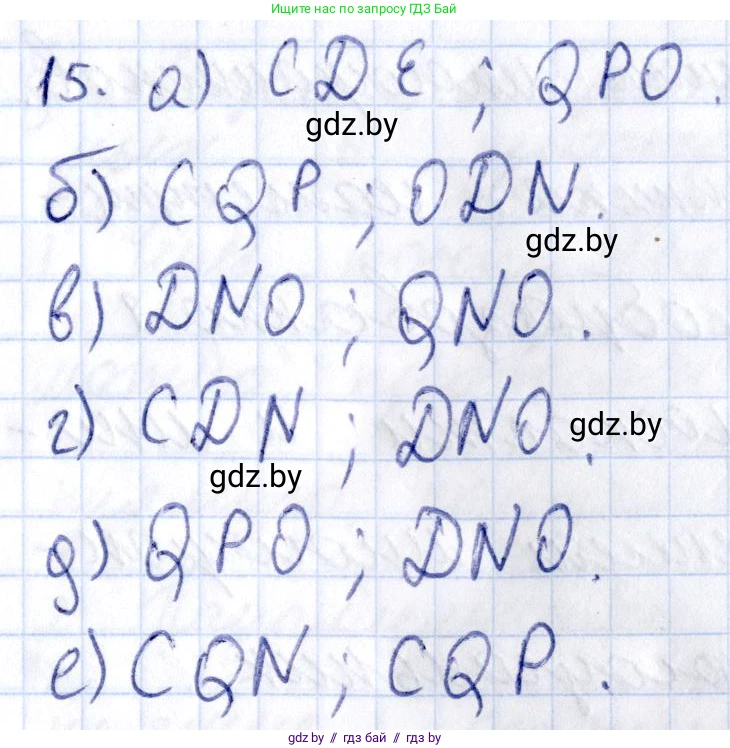 Ищите нас по запросу ГДЗ Бай
15. а) CDE ; QPO.
gdz.by
б) CQP ; ODN.
gdz.by
в) DNO ; QNO.
г) CDN ; DNO.
gdz.by
gdz.by
д) QPO ; DNO.
е) CQN ; CQP.
gdz.by // гдз бай // gdz.by